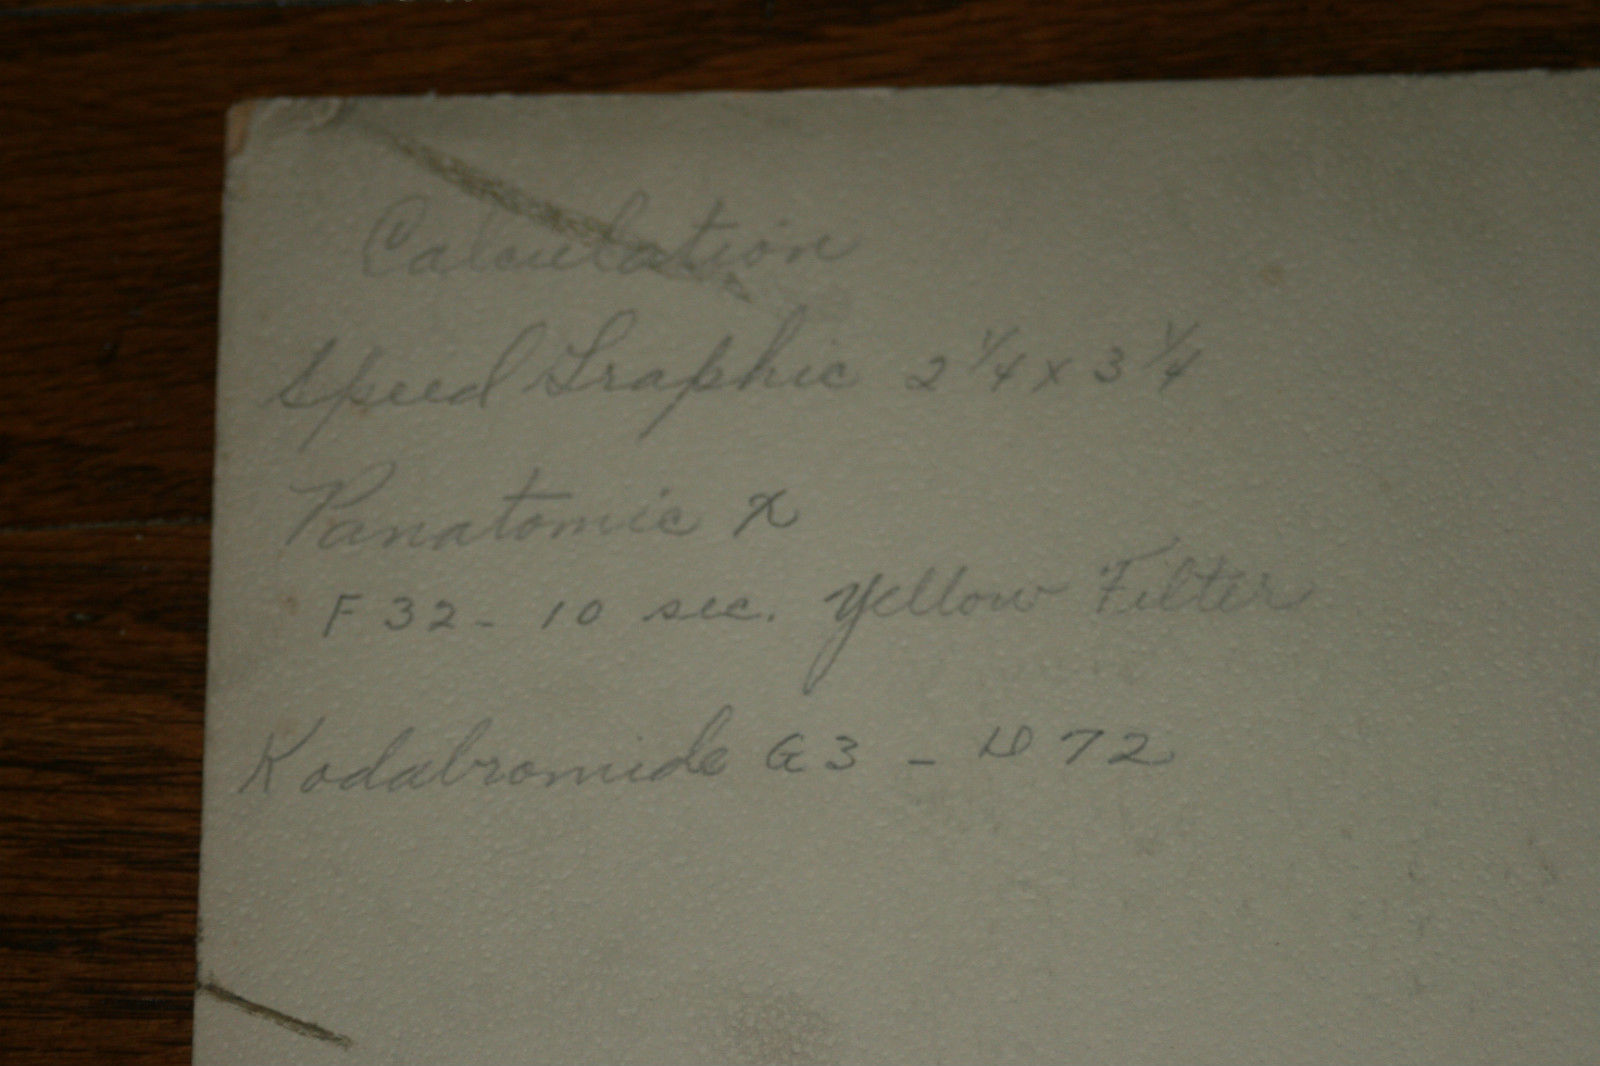 Calculation
Speed Graphic 2 1/4 x 3 1/4
Panatomic X
F 32 - 10 sec. Yellow Filter
Kodabromide G3 - D 72